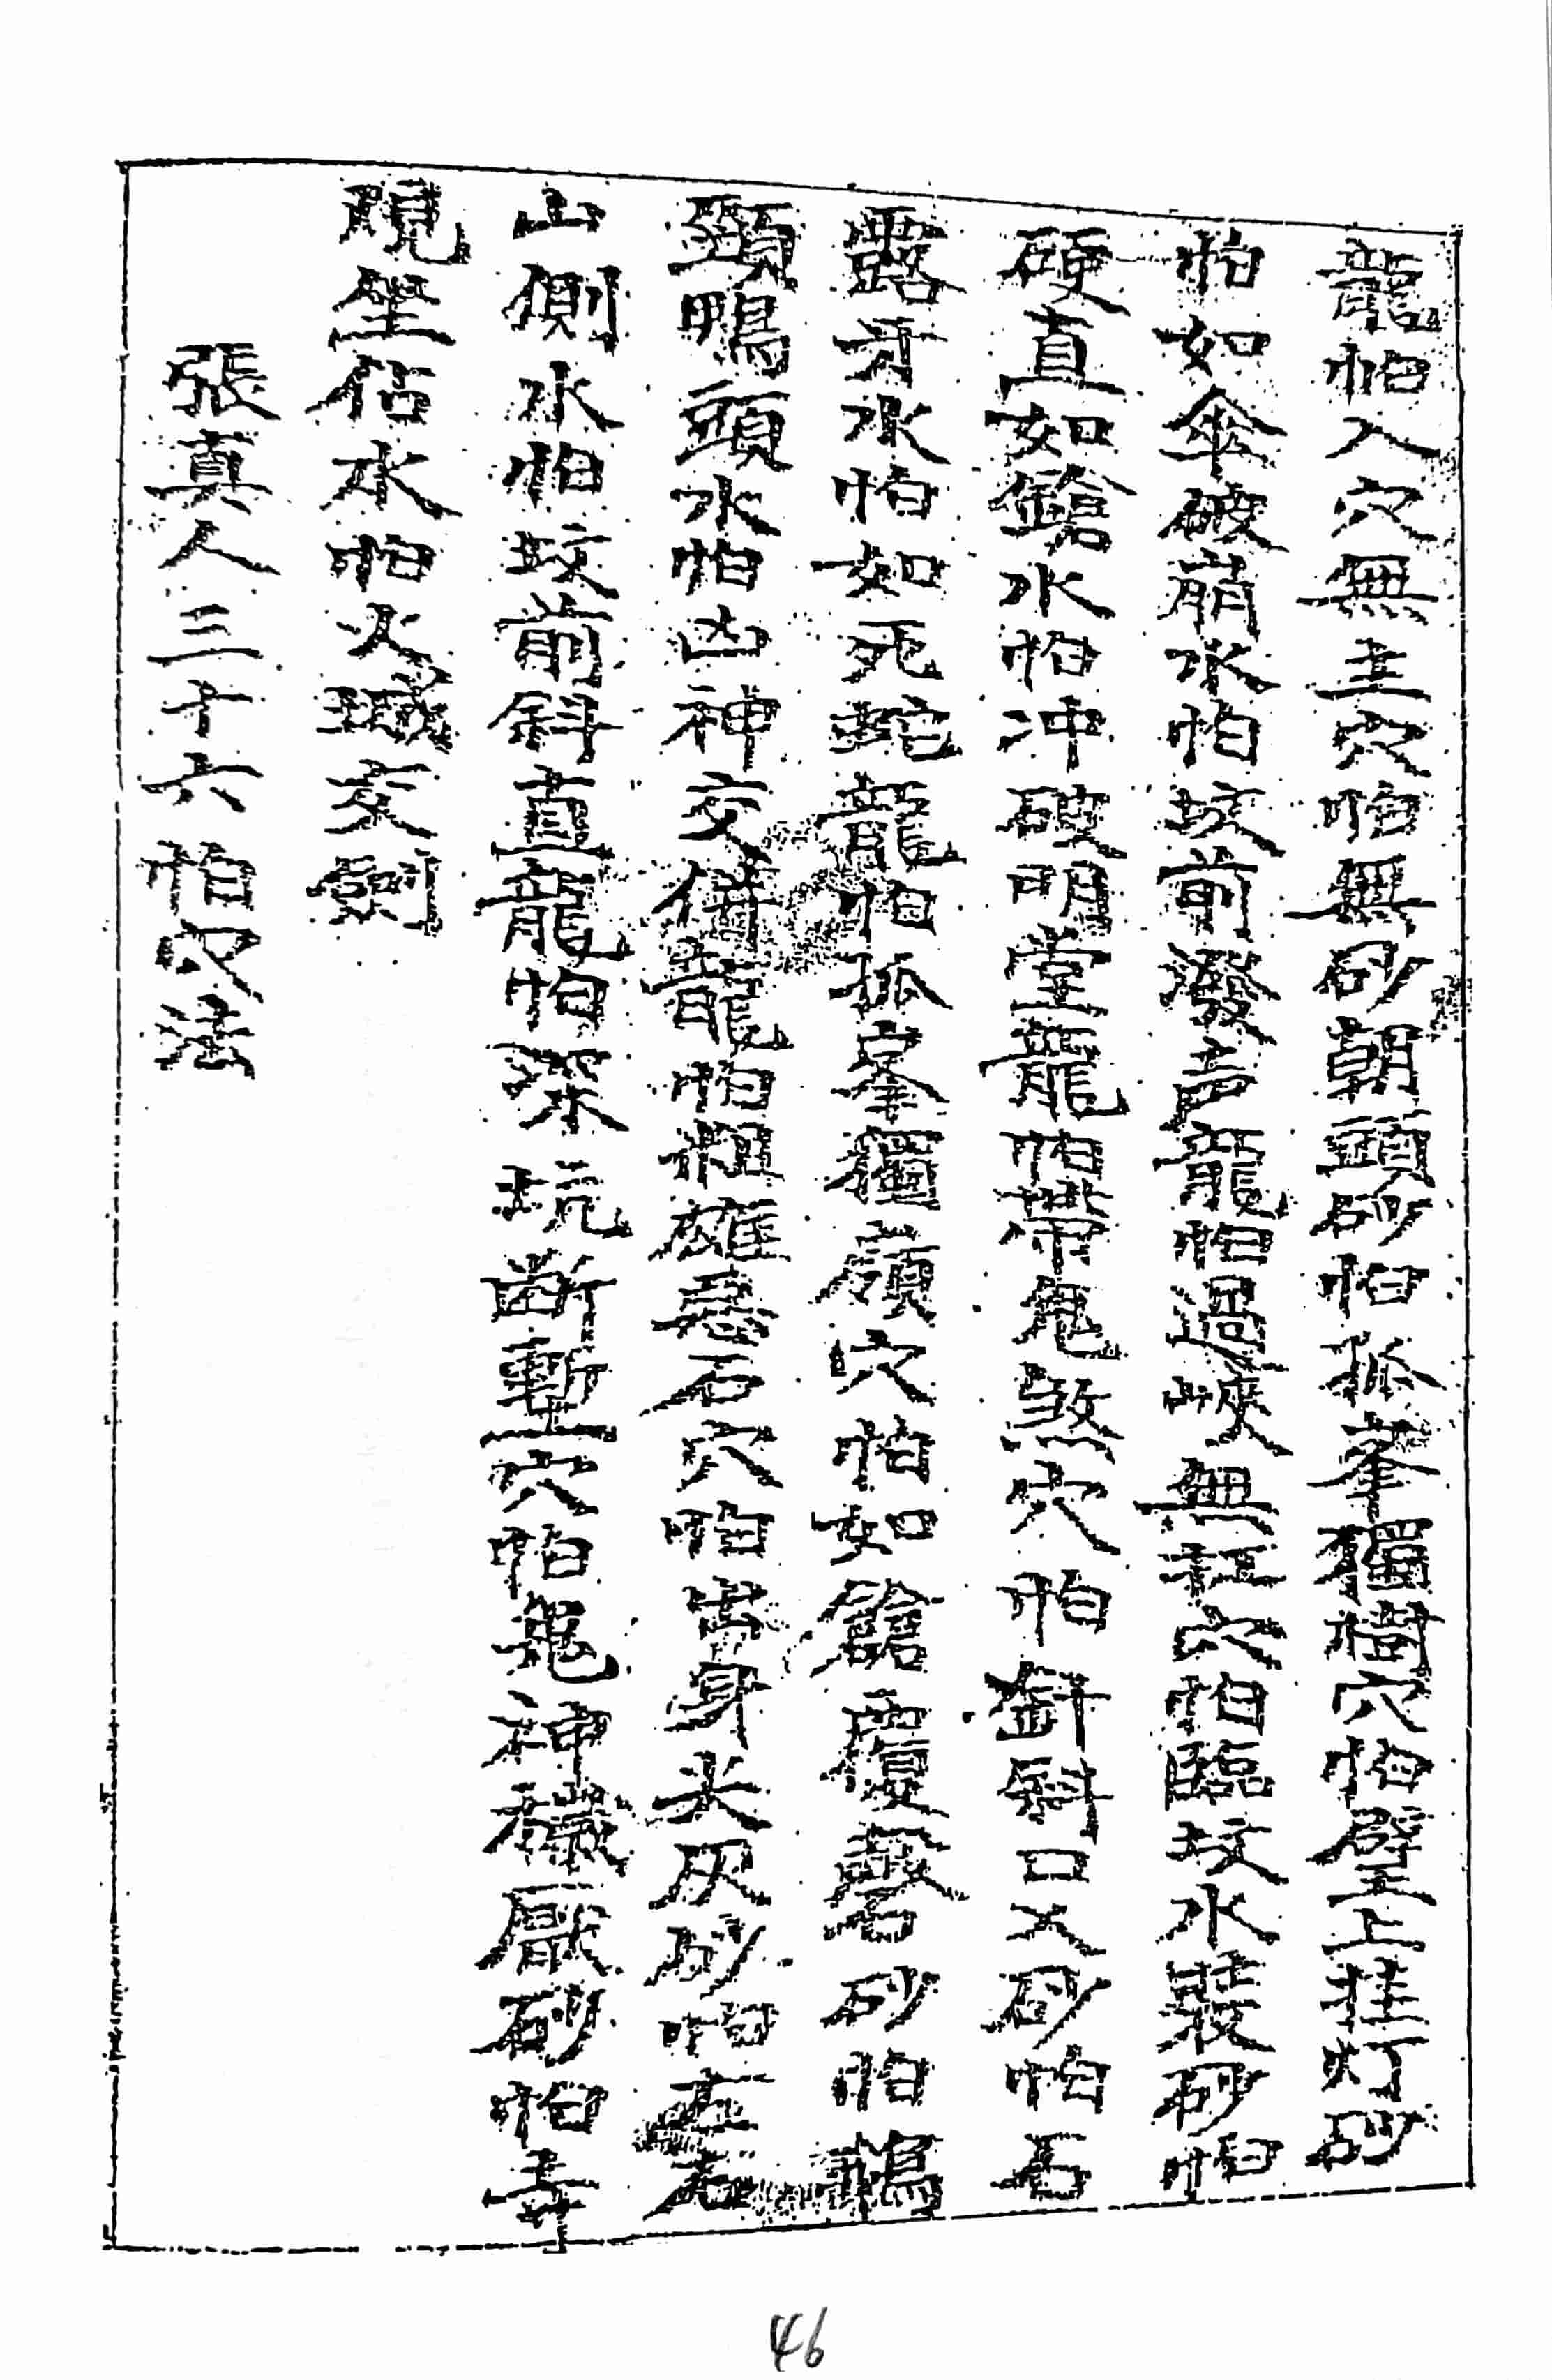 龍怕入穴無主穴怕無砂朝頭砂怕孤峯獨樹穴怕壁上挂灯砂
怕如傘破崩水怕坟前潑声龍怕過峽無証穴怕臨坟水裝砂怕
硬直如鎗水怕冲破明堂龍怕帶鬼煞穴怕斜口又砂怕石
露牙水怕如死蛇龍怕孤峯獨嶺穴怕如砂怕鵝
頸鴨頭水怕凶神交龍怕粗雄惡石穴怕出身尖砂怕左右
山側水怕坟前斜直龍怕深坑斷塹穴怕鬼神砂怕
水怕交劍
張真人三十六怕穴法
46